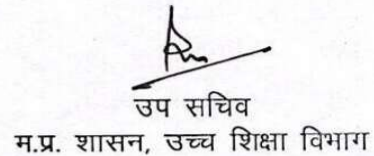 उप सचिव
म.प्र. शासन, उच्च शिक्षा विभाग